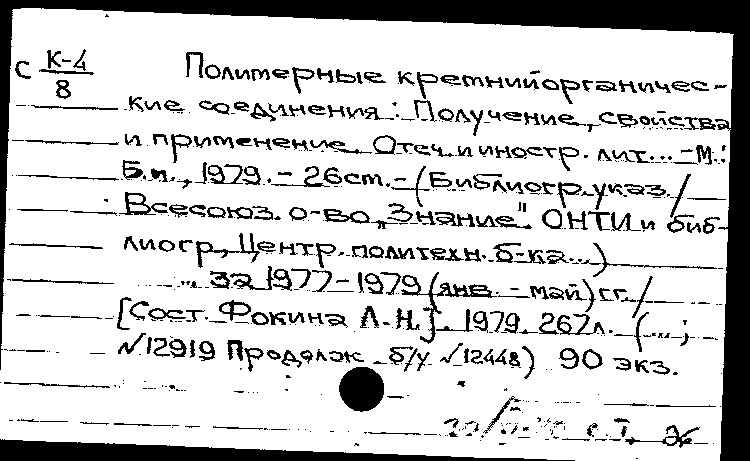 С К-4/8
Полимерные кремнийорганичес-
кие соединения: Получение, свойства
и применение. Отеч. и иностр. лит... - М.:
Б.и., 1979. - 26 ст. - (Библиогр. указ./
Всесоюз. о-во „Знание". ОНТИ и биб-
лиогр., Центр. политехн. б-ка...)
... за 1977-1979 (янв. - май) гг./
[Сост. Фокина Л.Н.]. 1979. 267л. (...;
№12919 Продолж. б/у №12448) 90 экз.